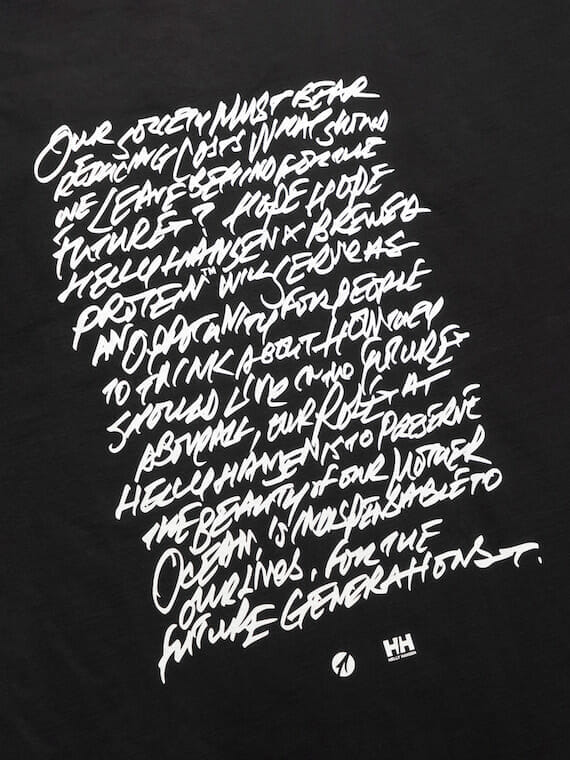 OUR SOCIETY MUST BEAR
REDUCING COSTS WHAT SHOULD
WE LEAVE BEHIND FOR THE
FUTURE? HOPE HOPE
HELLY HANSEN X BREWED
PROTEIN™ WILL SERVE AS
AN OPPORTUNITY FOR PEOPLE
TO THINK ABOUT HOW THEY
SHOULD LIVE IN THE FUTURE
ABOVE ALL, OUR ROLE AT
HELLY HANSEN IS TO PRESERVE
THE BEAUTY of OUR MOTHER
OCEAN, IS INDISPENSABLE TO
OUR LIVES, FOR THE
FUTURE GENERATIONS.
HH
HELLY HANSEN